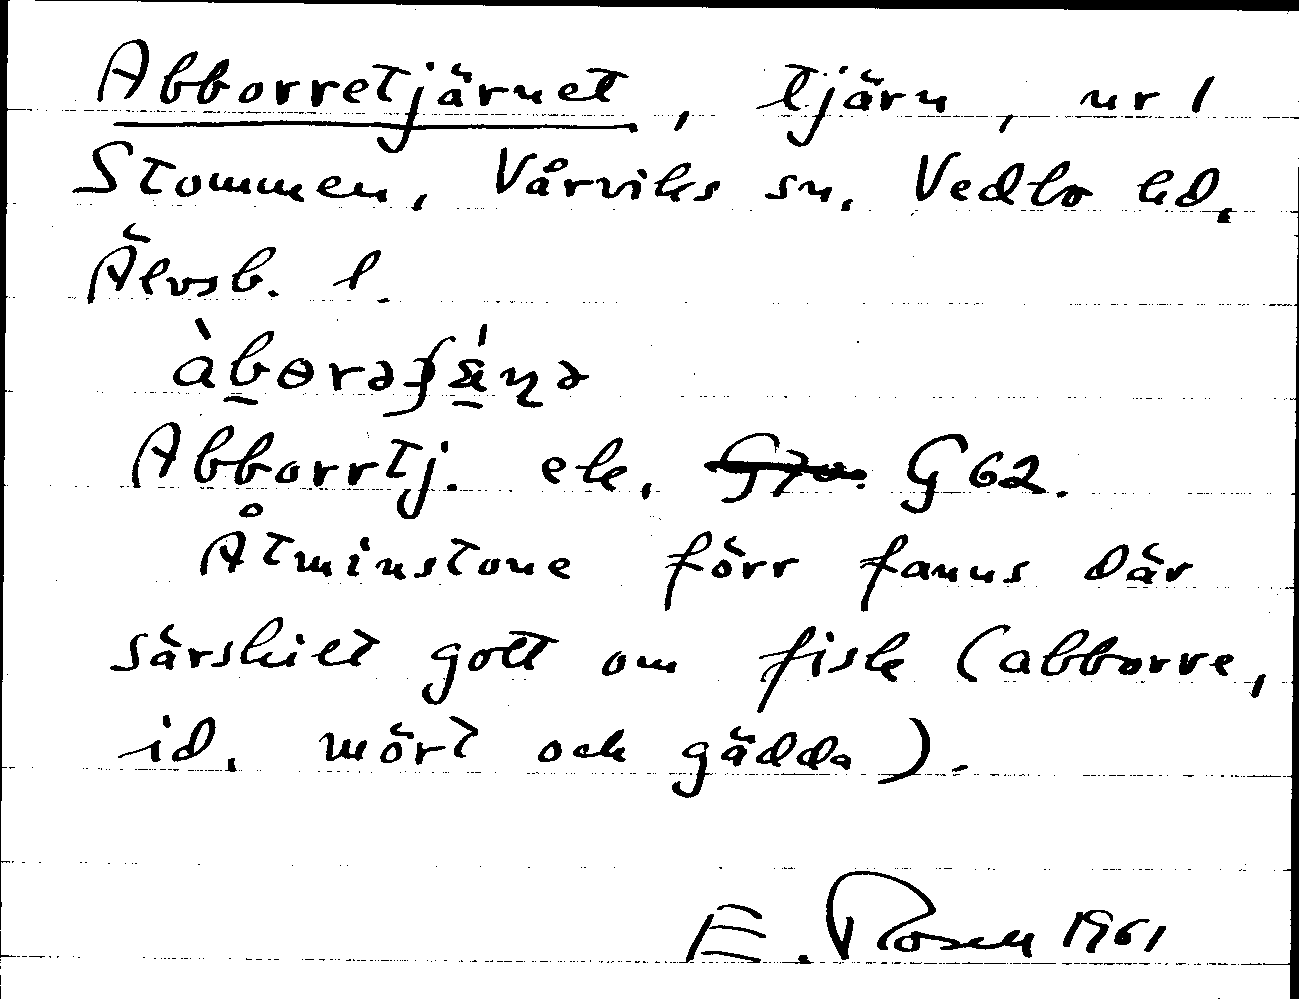 Abborretjärnet, tjärn, nr 1
Stommen, Vårviks sn, Vedbo hd,
Älvsb. l.
Abborrtj. ek. G70. G 62.
Åtminstone förr fanns där
särskilt gott om fisk (abborre,
id, mört och gädda).
E. Rosen 1961